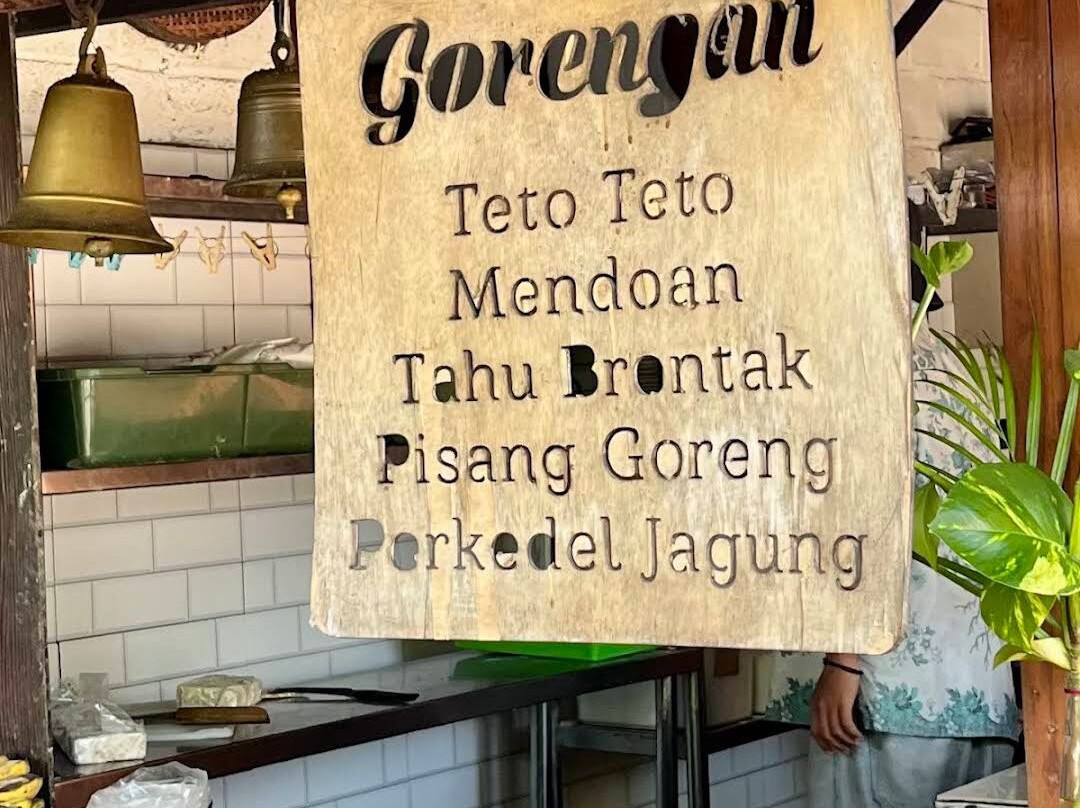 Gorengan
Teto Teto
Mendoan
Tahu Brontak
Pisang Goreng
Perkedel Jagung